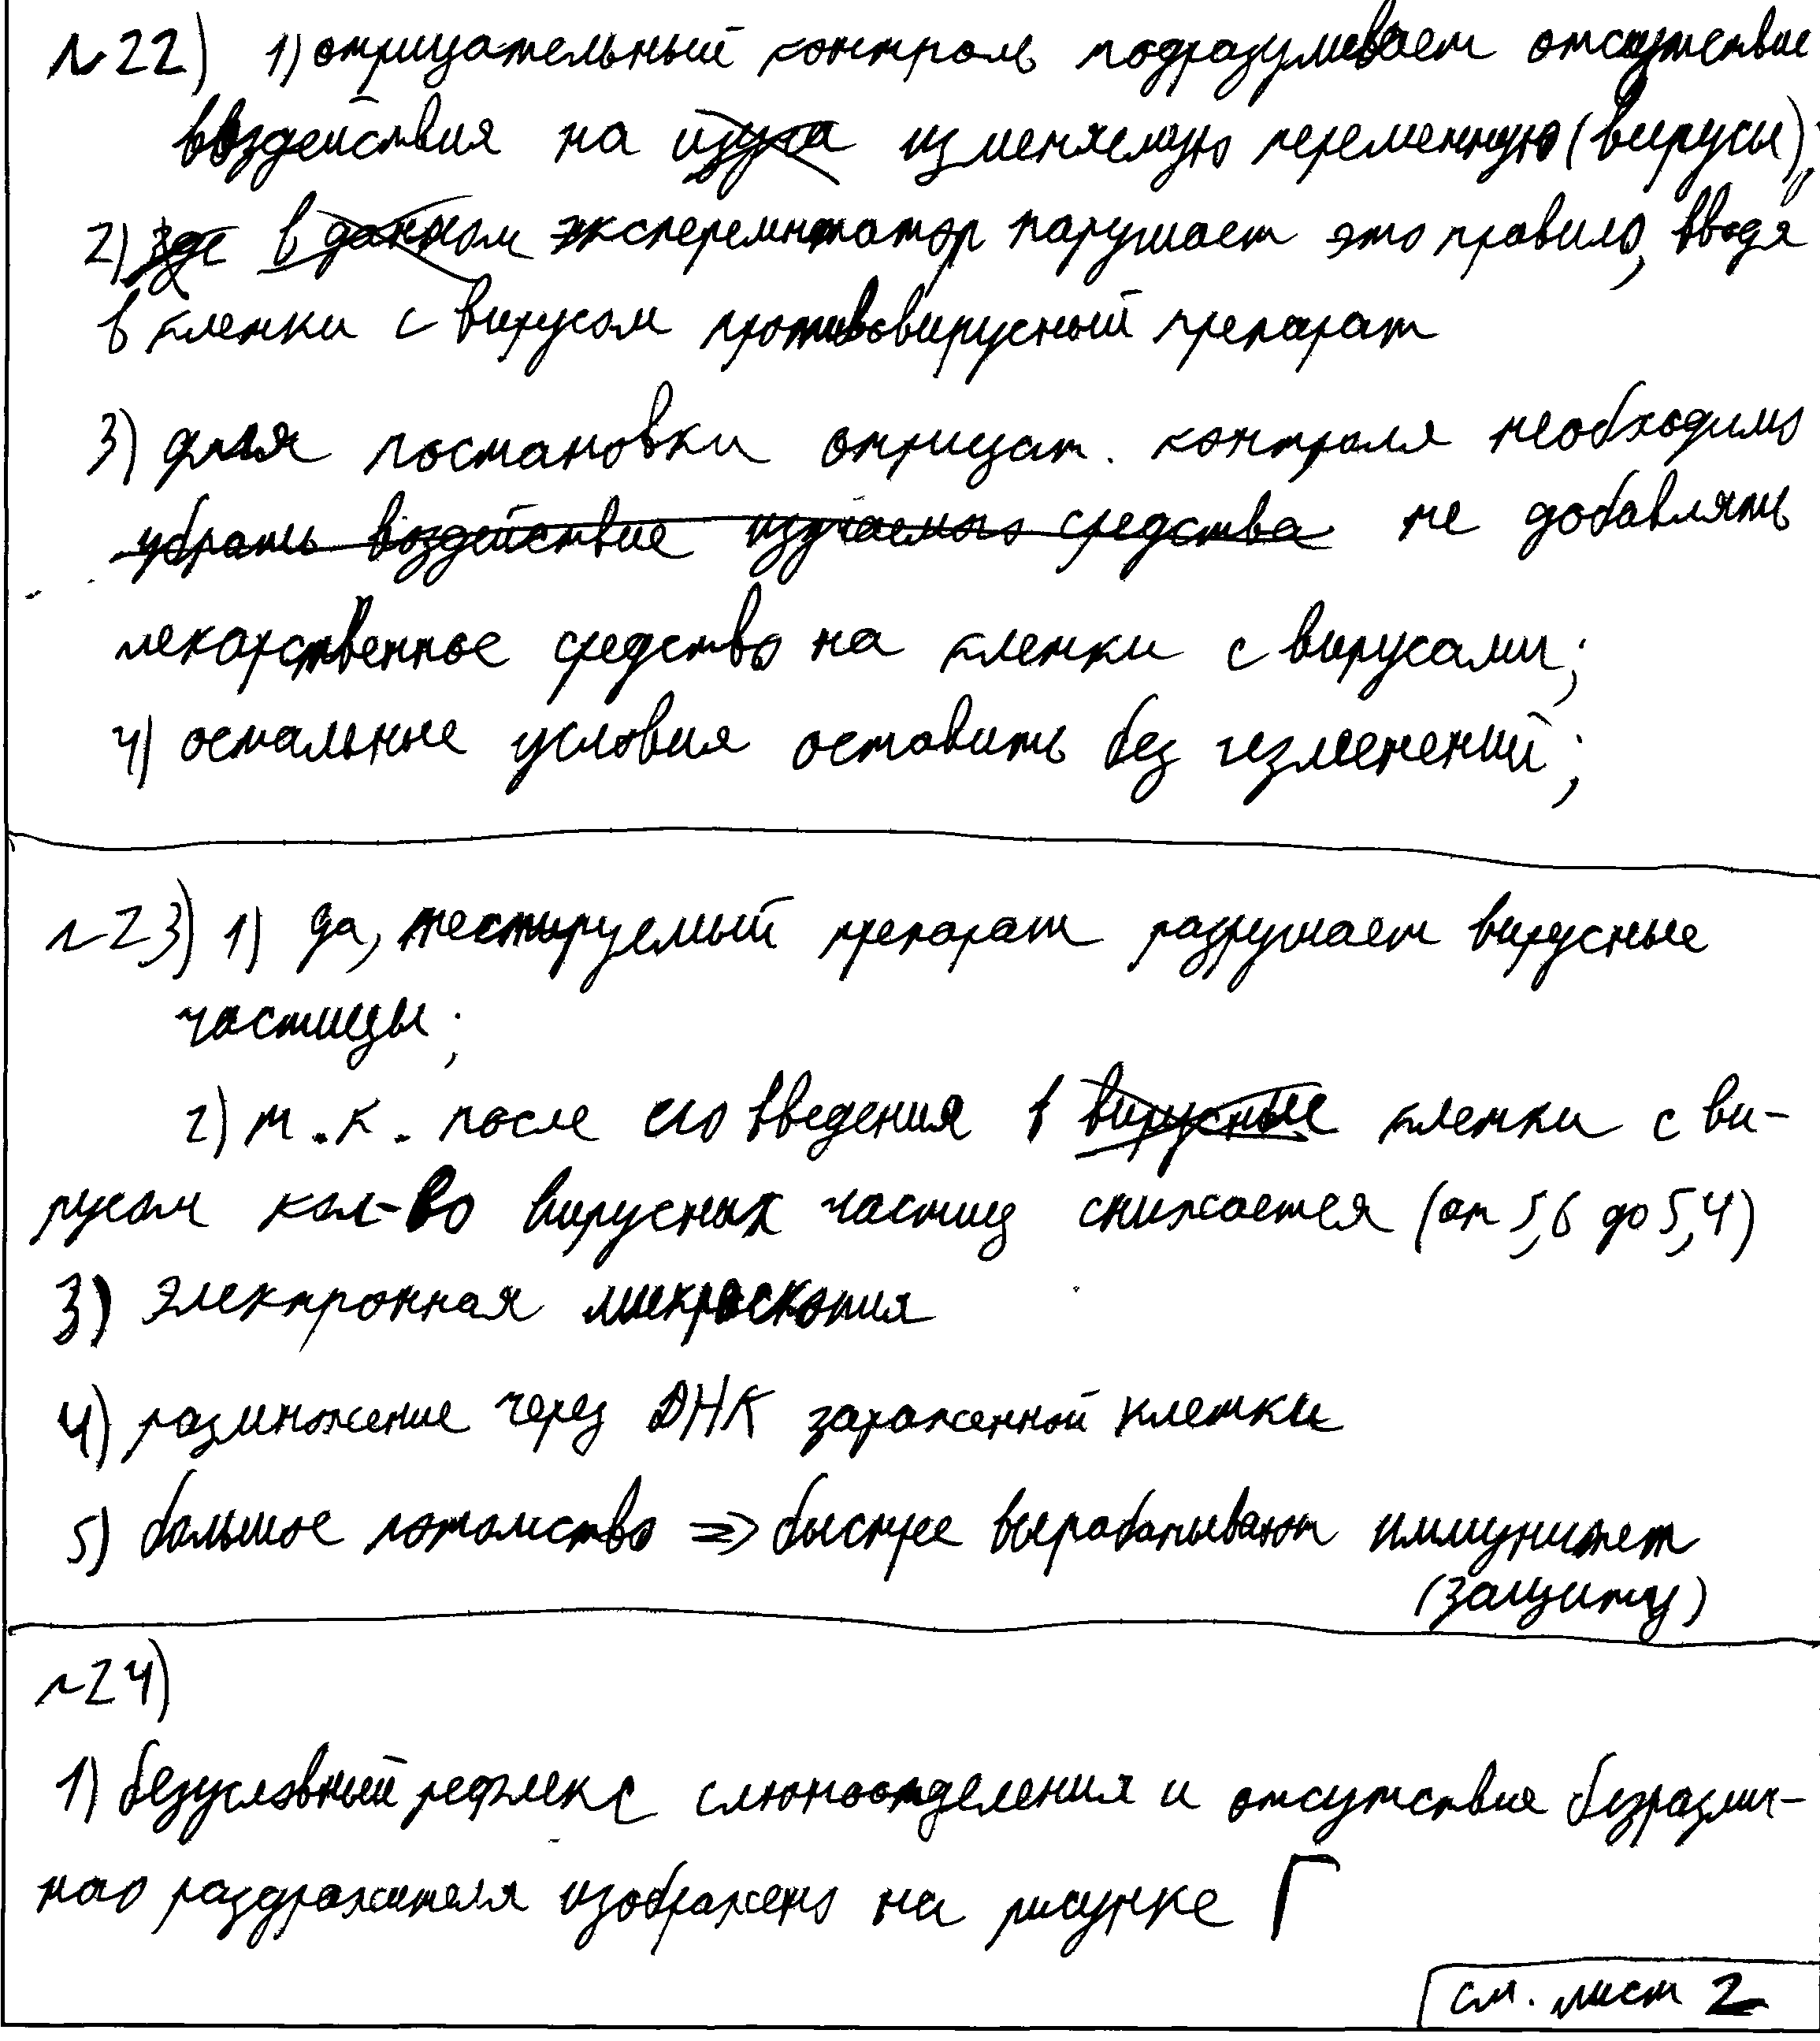 №22) 1) отрицательный контроль подразумевает отсутствие
воздействия на изуча изменяемую переменную (вирусы),
2) зде в данном эксперементатор нарушает это правило, вводя
в клетки с вирусом противовирусный препарат
3) для постановки отрицат. контроля необходимо
убрать воздействие изучаемого средства не добавлять
лекарственное средство на клетки с вирусами;
4) остальные условия оставить без изменений;
№23) 1) да, тестируемый препарат разрушает вирусные
частицы;
2) т.к. после его введения в вирусные клетки с ви-
русом кол-во вирусных частиц снижается (от 5,6 до 5,4)
3) электронная микроскопия
4) размножение через ДНК зараженной клетки
5) большое потомство => быстрее вырабатывают иммунитет
(защиту)
№24)
1) безусловный рефлекс слюноотделения и отсутствие безразлич-
ного раздражителя изображено на рисунке Г
см. лист 2